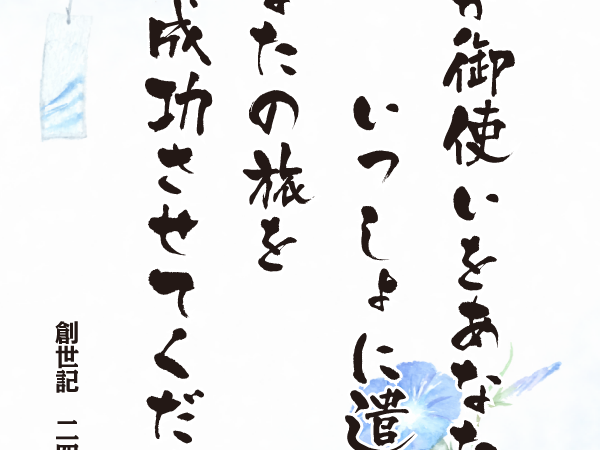 御使いをあなた
いっしょに遣
たの旅を
成功させてくだ
創世記 二四